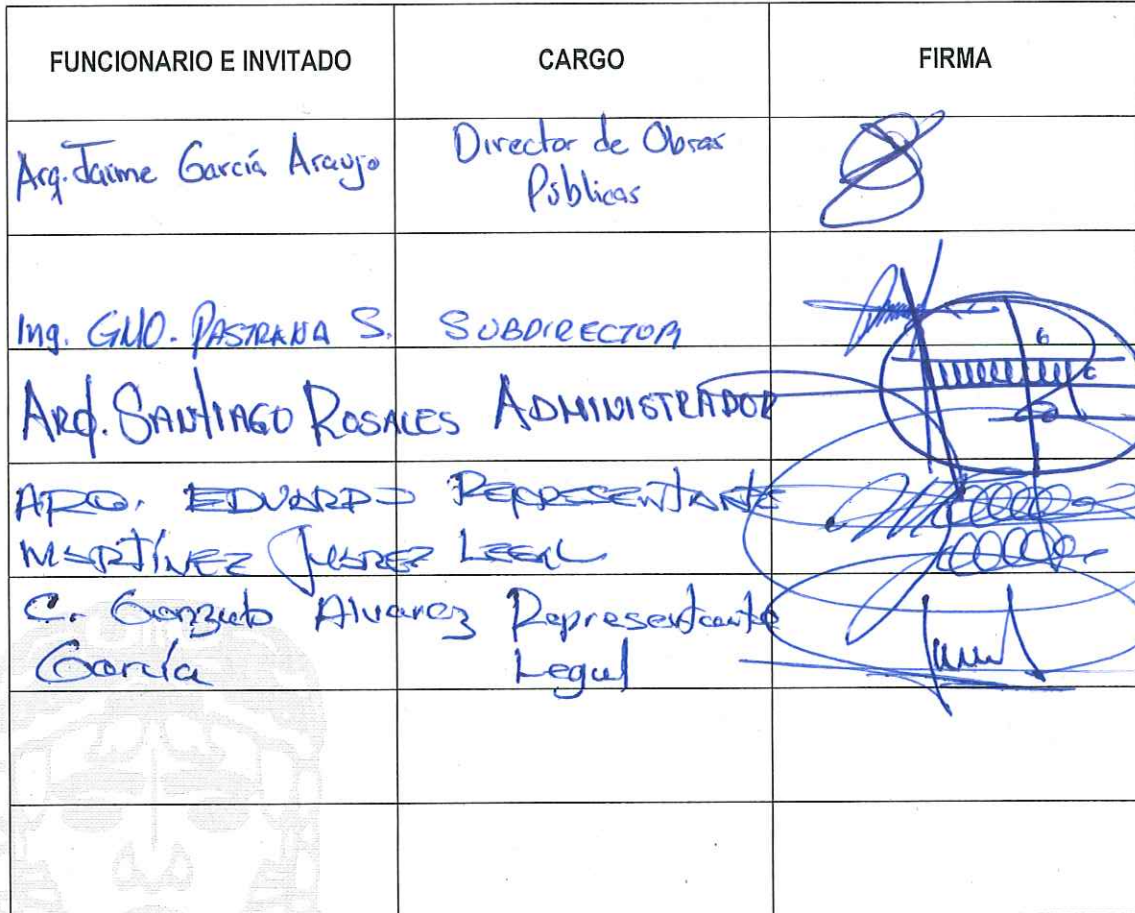 FUNCIONARIO E INVITADO CARGO FIRMA
Arq. Jaime García Araujo Director de Obras
Públicas
Ing. GMO. PASTRANA S. SUBDIRECTOR
ARQ. SANTIAGO ROSALES ADMINISTRADOR
ARQ. EDUARDO REPRESENTANTE
MARTÍNEZ JUAREZ LEGAL
C. Gonzalo Alvarez Representante
García Legal